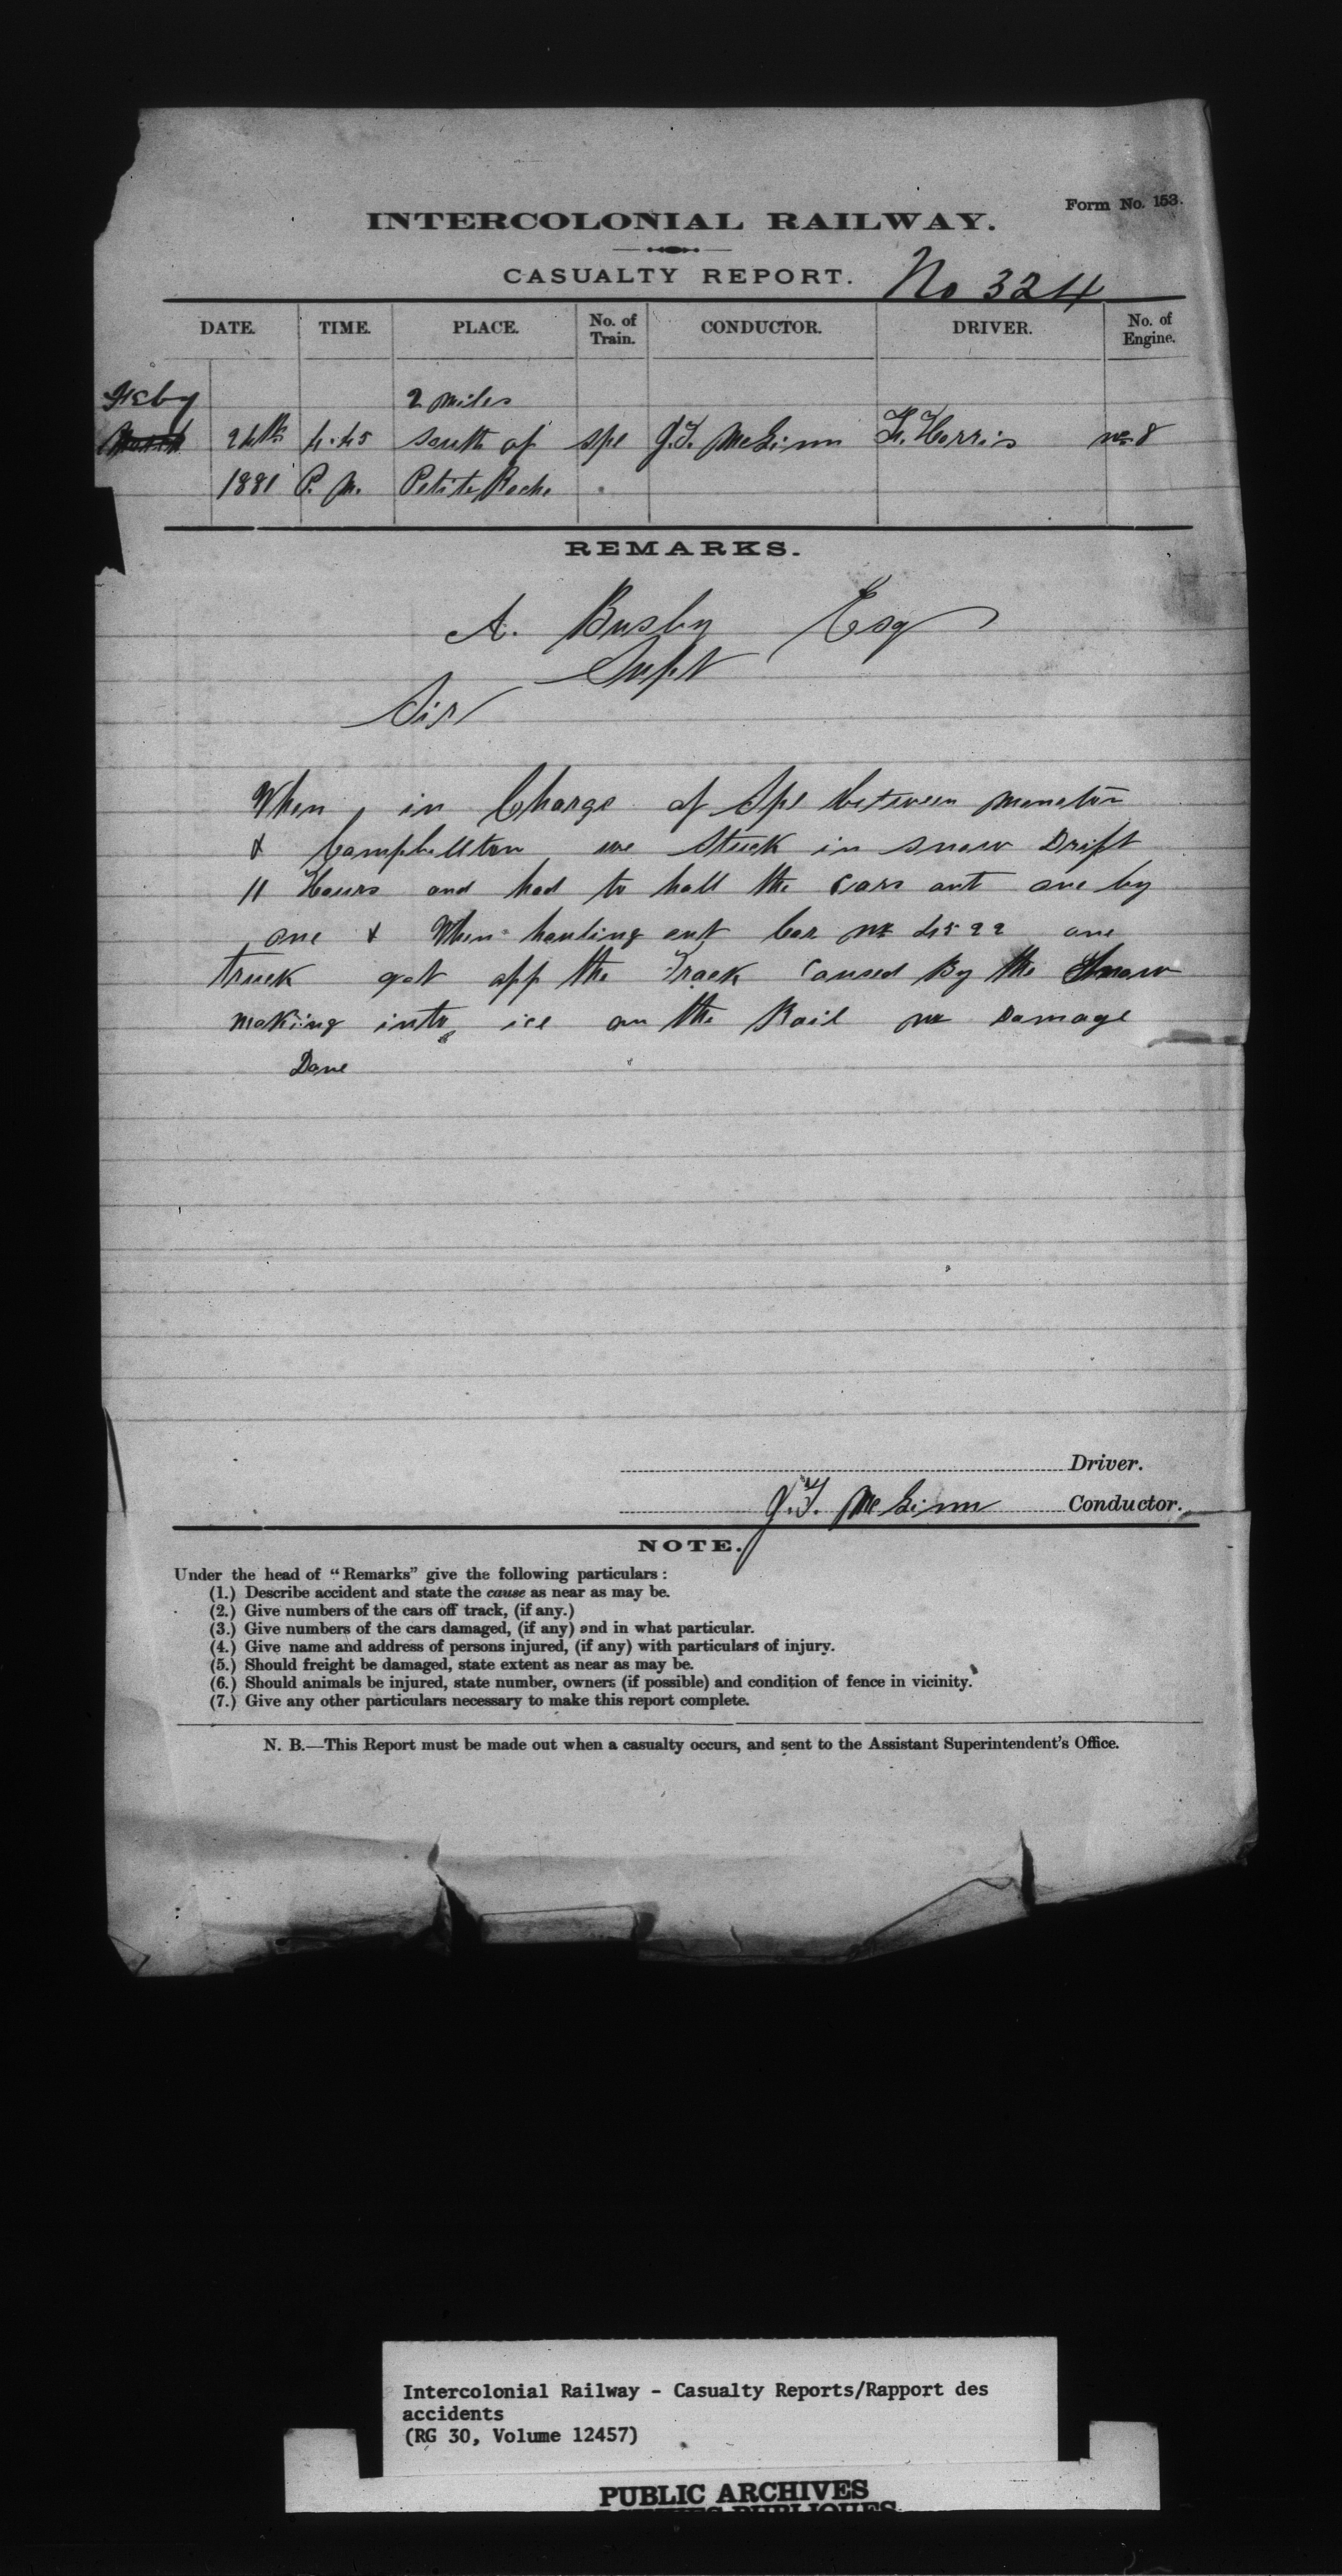 Form No. 153.
INTERCOLONIAL RAILWAY.
CASUALTY REPORT. No 324
DATE. TIME. PLACE. No. of Train. CONDUCTOR. DRIVER. No. of Engine.
Feby 2 miles
March 24th 4.45 south of spe J.T. McGinn F. Harris no 8
1881 P. M. Petite Roche
REMARKS.
A. Busby Esq
Supt
Sir
When in Charge of Spe between moncton
& Campbellton we stuck in snow Drift
11 Hours and had to hall the Cars out one by
one & When hauling out Car no 4522 one
truck got off the Track Caused By the Snow
making into ice on the Rail no Damage
Done
Driver.
J.T. McGinn Conductor.
NOTE.
Under the head of "Remarks" give the following particulars:
(1.) Describe accident and state the cause as near as may be.
(2.) Give numbers of the cars off track, (if any.)
(3.) Give numbers of the cars damaged, (if any) and in what particular.
(4.) Give name and address of persons injured, (if any) with particulars of injury.
(5.) Should freight be damaged, state extent as near as may be.
(6.) Should animals be injured, state number, owners (if possible) and condition of fence in vicinity.
(7.) Give any other particulars necessary to make this report complete.
N. B.—This Report must be made out when a casualty occurs, and sent to the Assistant Superintendent's Office.
Intercolonial Railway - Casualty Reports/Rapport des
accidents
(RG 30, Volume 12457)
PUBLIC ARCHIVES